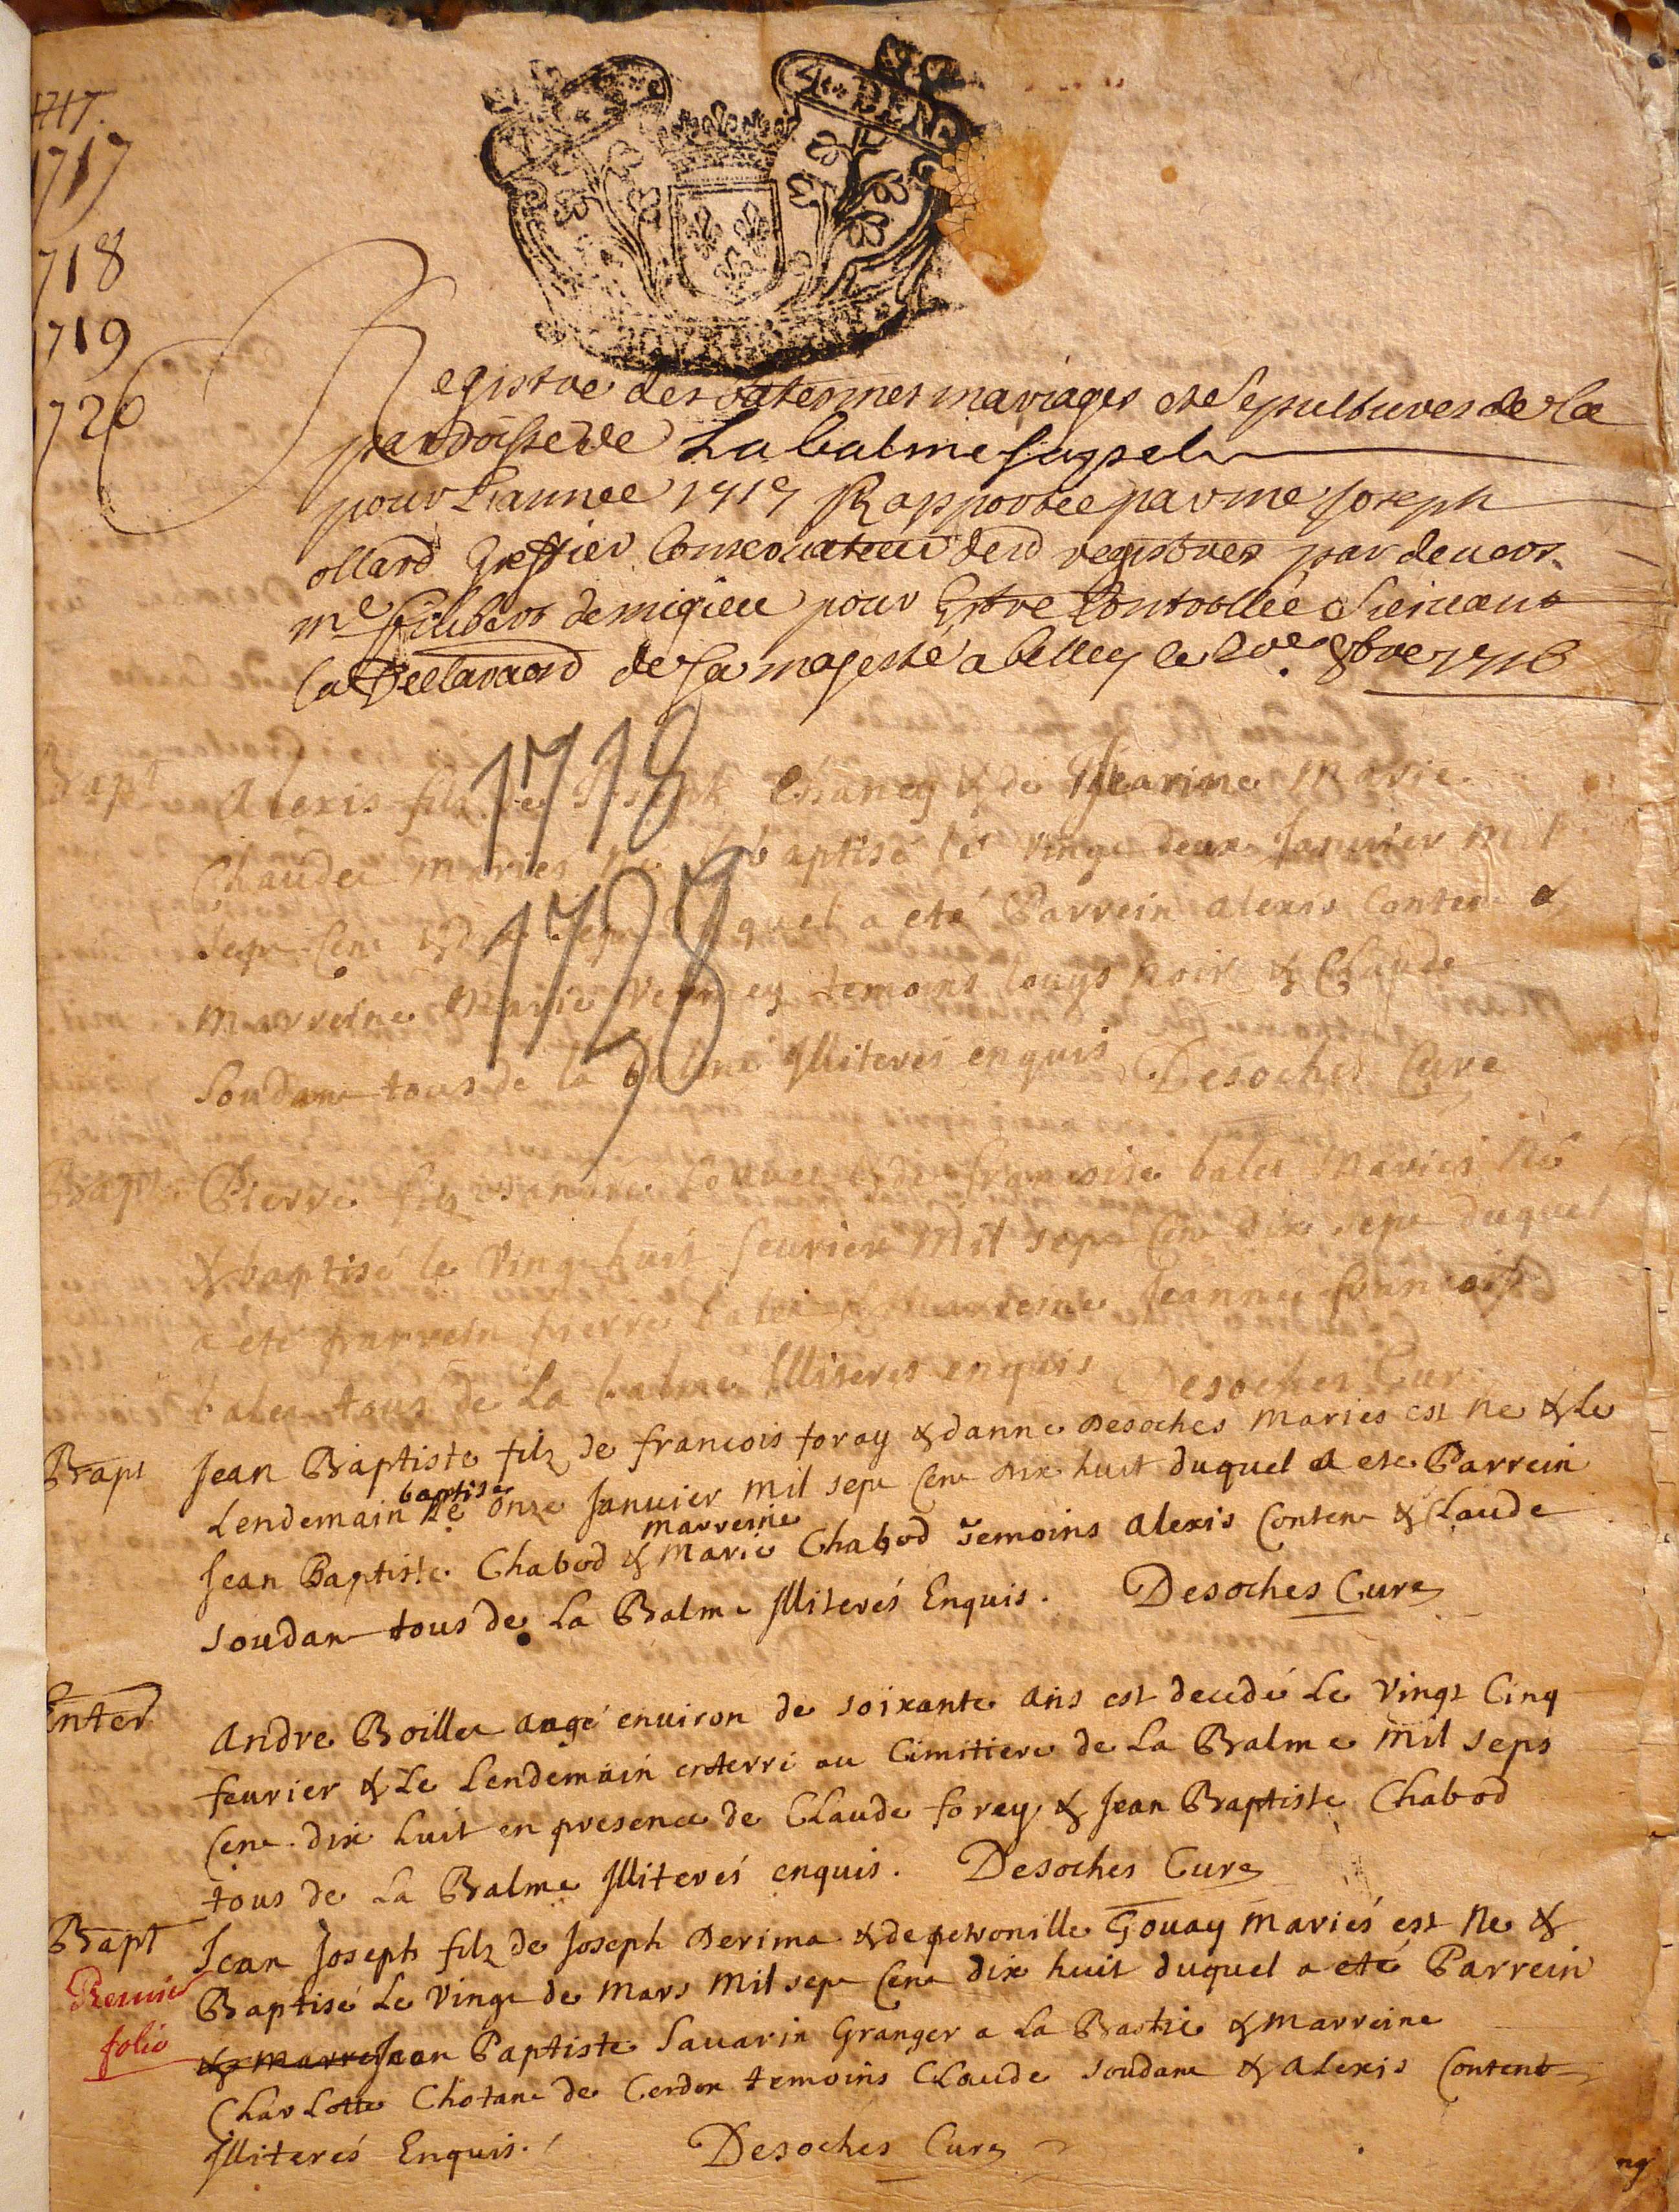 1717.
1717
1718
1719
1720
4 DEN
Registre des batesmes mariages et Sepultures de la
parroisse de La balme
pour L'année 1717 Rapportée par me Joseph
ollard Greffier Conservateur desd registres par devers
me de migieu pour Estre Controllée Suivant
la declaraon de sa majesté a belley le 8bre 1716
1718
1728
Bapt Alexis filz de Joseph & de Marie
mariés né & baptisé le vingt deux Janvier mil
sept Cent dix sept duquel a eté Parrein alexis Content &
Marreine Marie temoins louys noir & Claude
Soudan tous de la balme Illiterés enquis Desoches Cure
Bapt Pierre filz & de francoise balet Mariés né
& baptisé le Vingt huit feurier Mil sept Cent dix sept duquel
a eté parrein pierre balet & Marreine Jeanne francoise
balet tous de La balme Illiterés enquis Desoches Cure
Bapt Jean Baptiste filz de francois foray & danne Desoches Mariés est Ne & Le
Lendemain baptisé Le onze Janvier mil sept Cent dix huit duquel a ete Parrein
Jean Baptiste Chabod & marreine Marie Chabod Temoins Alexis Content & Claude
Soudan tous de La Balme Illiterés Enquis. Desoches Cure
Enter Andre Boillet aagé enuiron de soixante ans est decedé Le vingt Cinq
feurier & Le Lendemain enterré au Cimitiere de La Balme Mil sept
Cent dix huit en presence de Claude forey & Jean Baptiste Chabod
tous de La Balme Illiterés enquis. Desoches Cure
Bapt Jean Joseph filz de Joseph Derima & de petronille Gouay Mariés est Ne &
Baptisé Le vingt de Mars Mil sept Cent dix huit duquel a eté Parrein
Premier
folio
& marre Jean Baptiste Sauarin Granger a La Bastie & marreine
Charlotte Chotane de Cerdon temoins Claude Soudan & Alexis Content
Illiterés Enquis. Desoches Cure